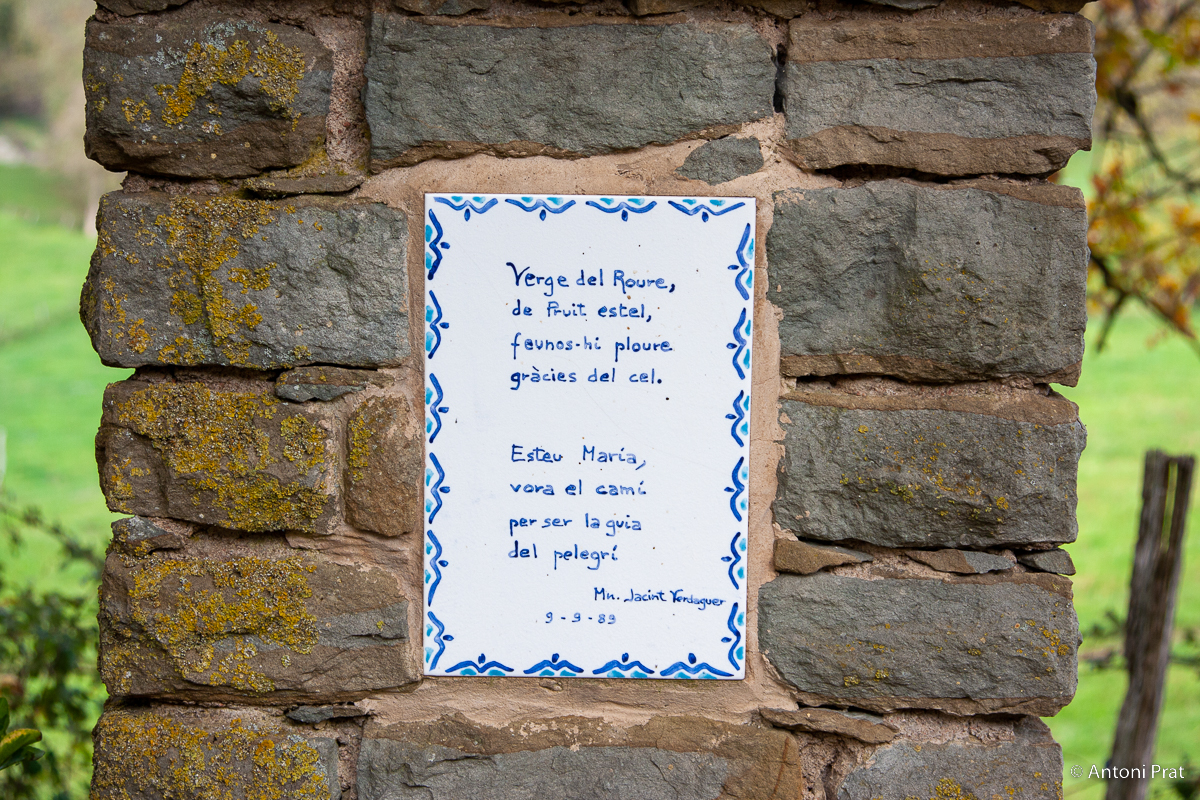 Verge del Roure,
de fruit estel,
feunos-hi ploure
gràcies del cel.
Esteu María,
vora el camí
per ser la guia
del pelegrí
Mn. Jacint Verdaguer
9-9-89
© Antoni Prat